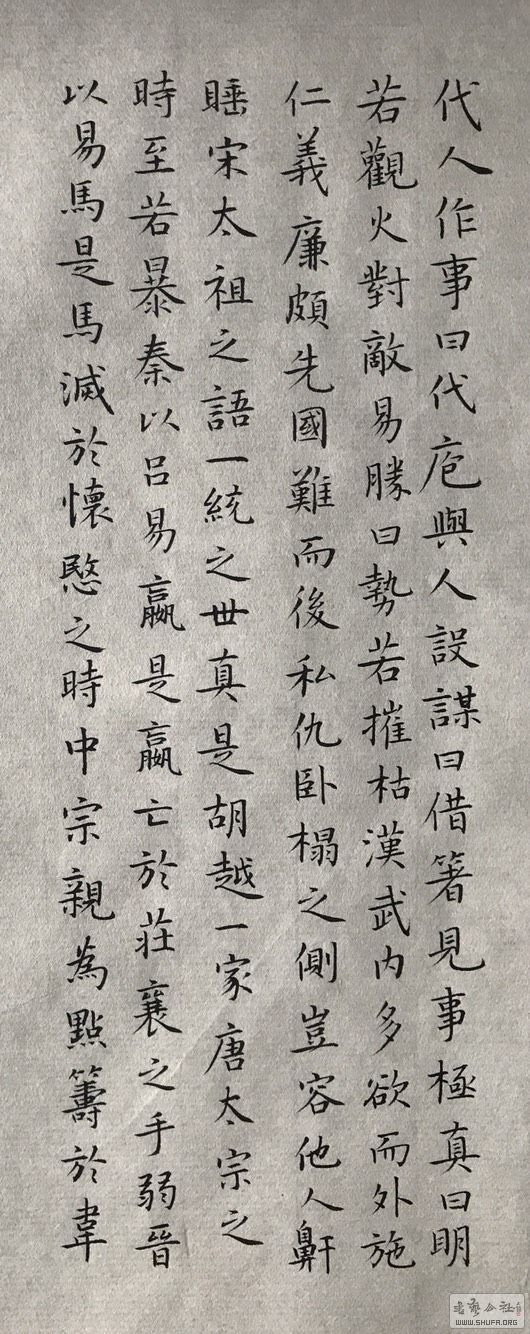 代人作事曰代庖與人設謀曰借箸見事極真曰明
若觀火對敵易勝曰勢若摧枯漢武內多欲而外施
仁義廉頗先國難而後私仇卧榻之側豈容他人鼾
睡宋太祖之語一統之世真是胡越一家唐太宗之
時至若暴秦以吕易嬴是嬴亡於莊襄之手弱晉
以易馬是馬滅於懷愍之時中宗親為點籌於韋
WWW.SHUFA.ORG